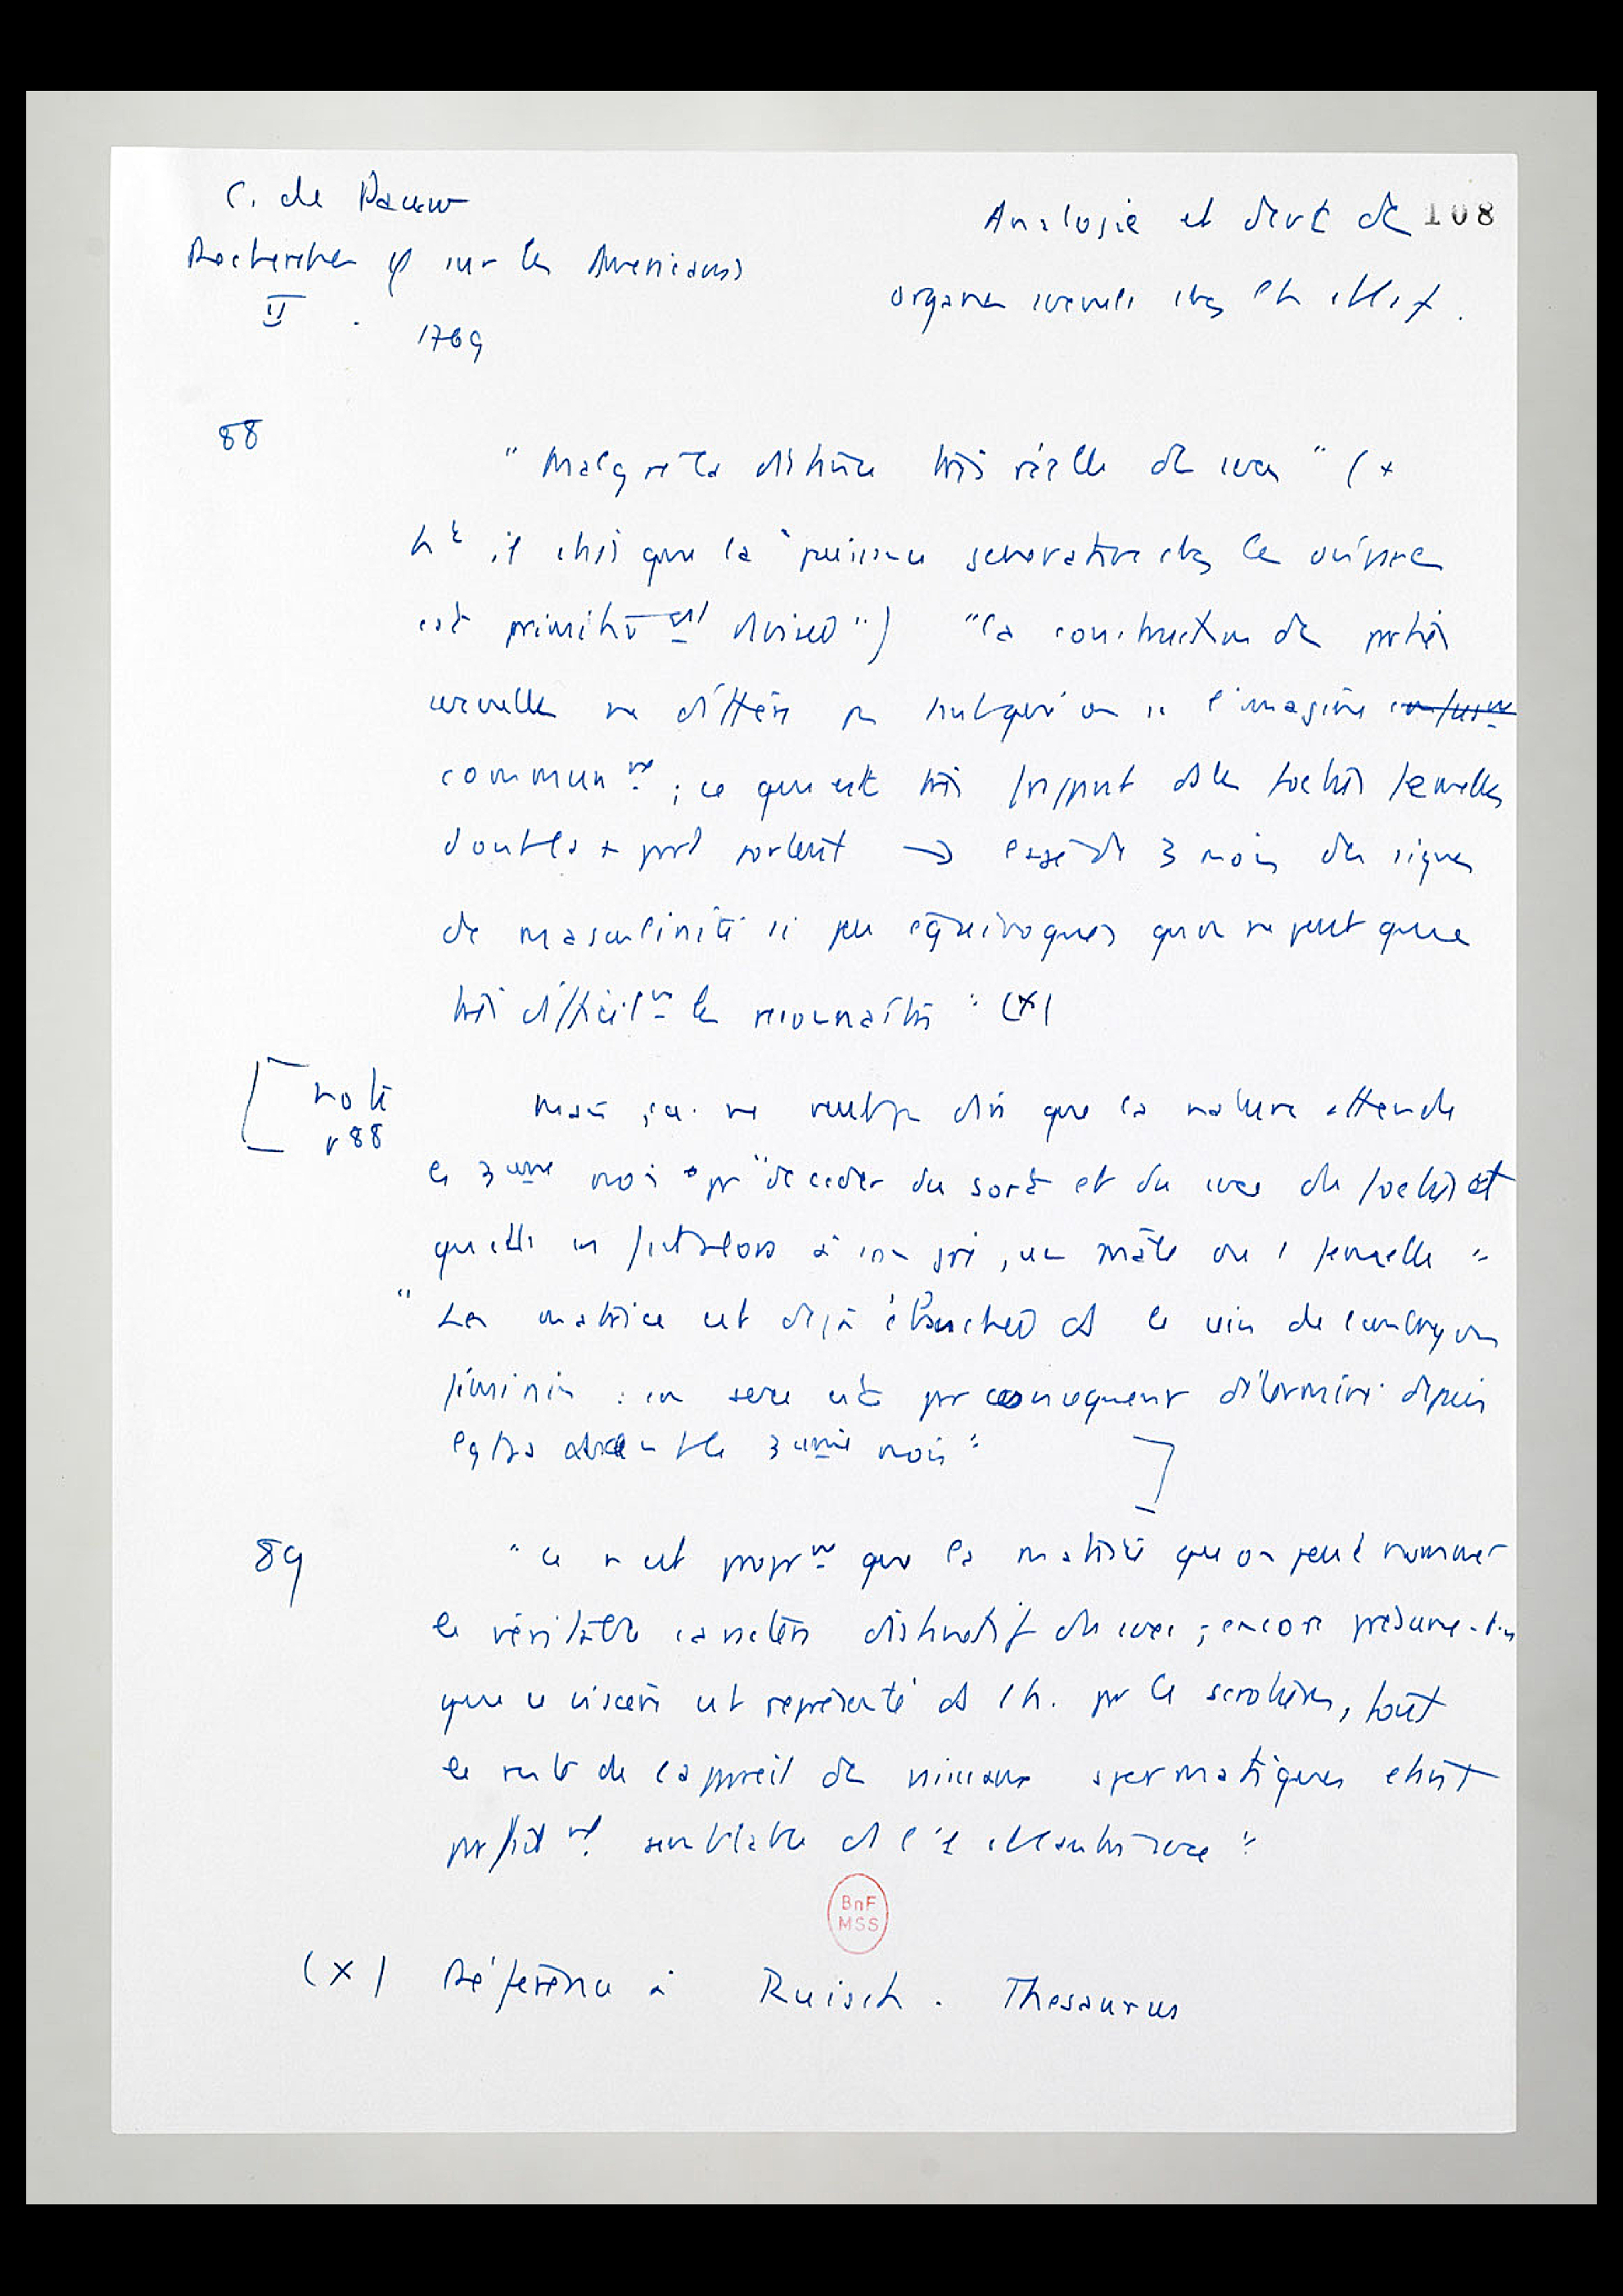 C. de Pauw
Recherches φ sur les Américains
II . 1769
Analogie et devt des
108
organes sexuels chez l'h et la f.
88
"Malgré la distinction très réelle des sexes" (+
ht il choisi que la "puissance génératrice chez les
est primitivemt divisée") "la construction des parties
sexuelles ne diffère pas autant qu'on se l'imagine
communemt ; ce qui est très frappant ds les foetus femelles
dont la + part portent à l'âge de 3 mois des signes
de masculinité si peu équivoques qu'on ne peut que
très difficilemt les reconnaître" (x)
[ note
p 88
Mais ça ne veut pas dire que la nature attende
le 3ème mois pr "décider du sort et du sexe du foetus et
qu'elle en fait alors à son gré, un mâle ou 1 femelle"
"La matrice est déjà ébauchée ds le sein de l'embryon
féminin : son sexe est par conséquent déterminé depuis
le 3ème mois" ]
89
"Ce n'est propremt que la matrice qu'on peut nommer
le véritable caractère distinctif du sexe ; encore présume-t-on
que ce viscère est représenté ds l'h. par le scrotum, tout
le reste de l'appareil des vaisseaux spermatiques étant
parfaitemt semblable ds l'1 et l'autre sexe"
BnF
MSS
(x) Référence à Ruisch. Thesaurus